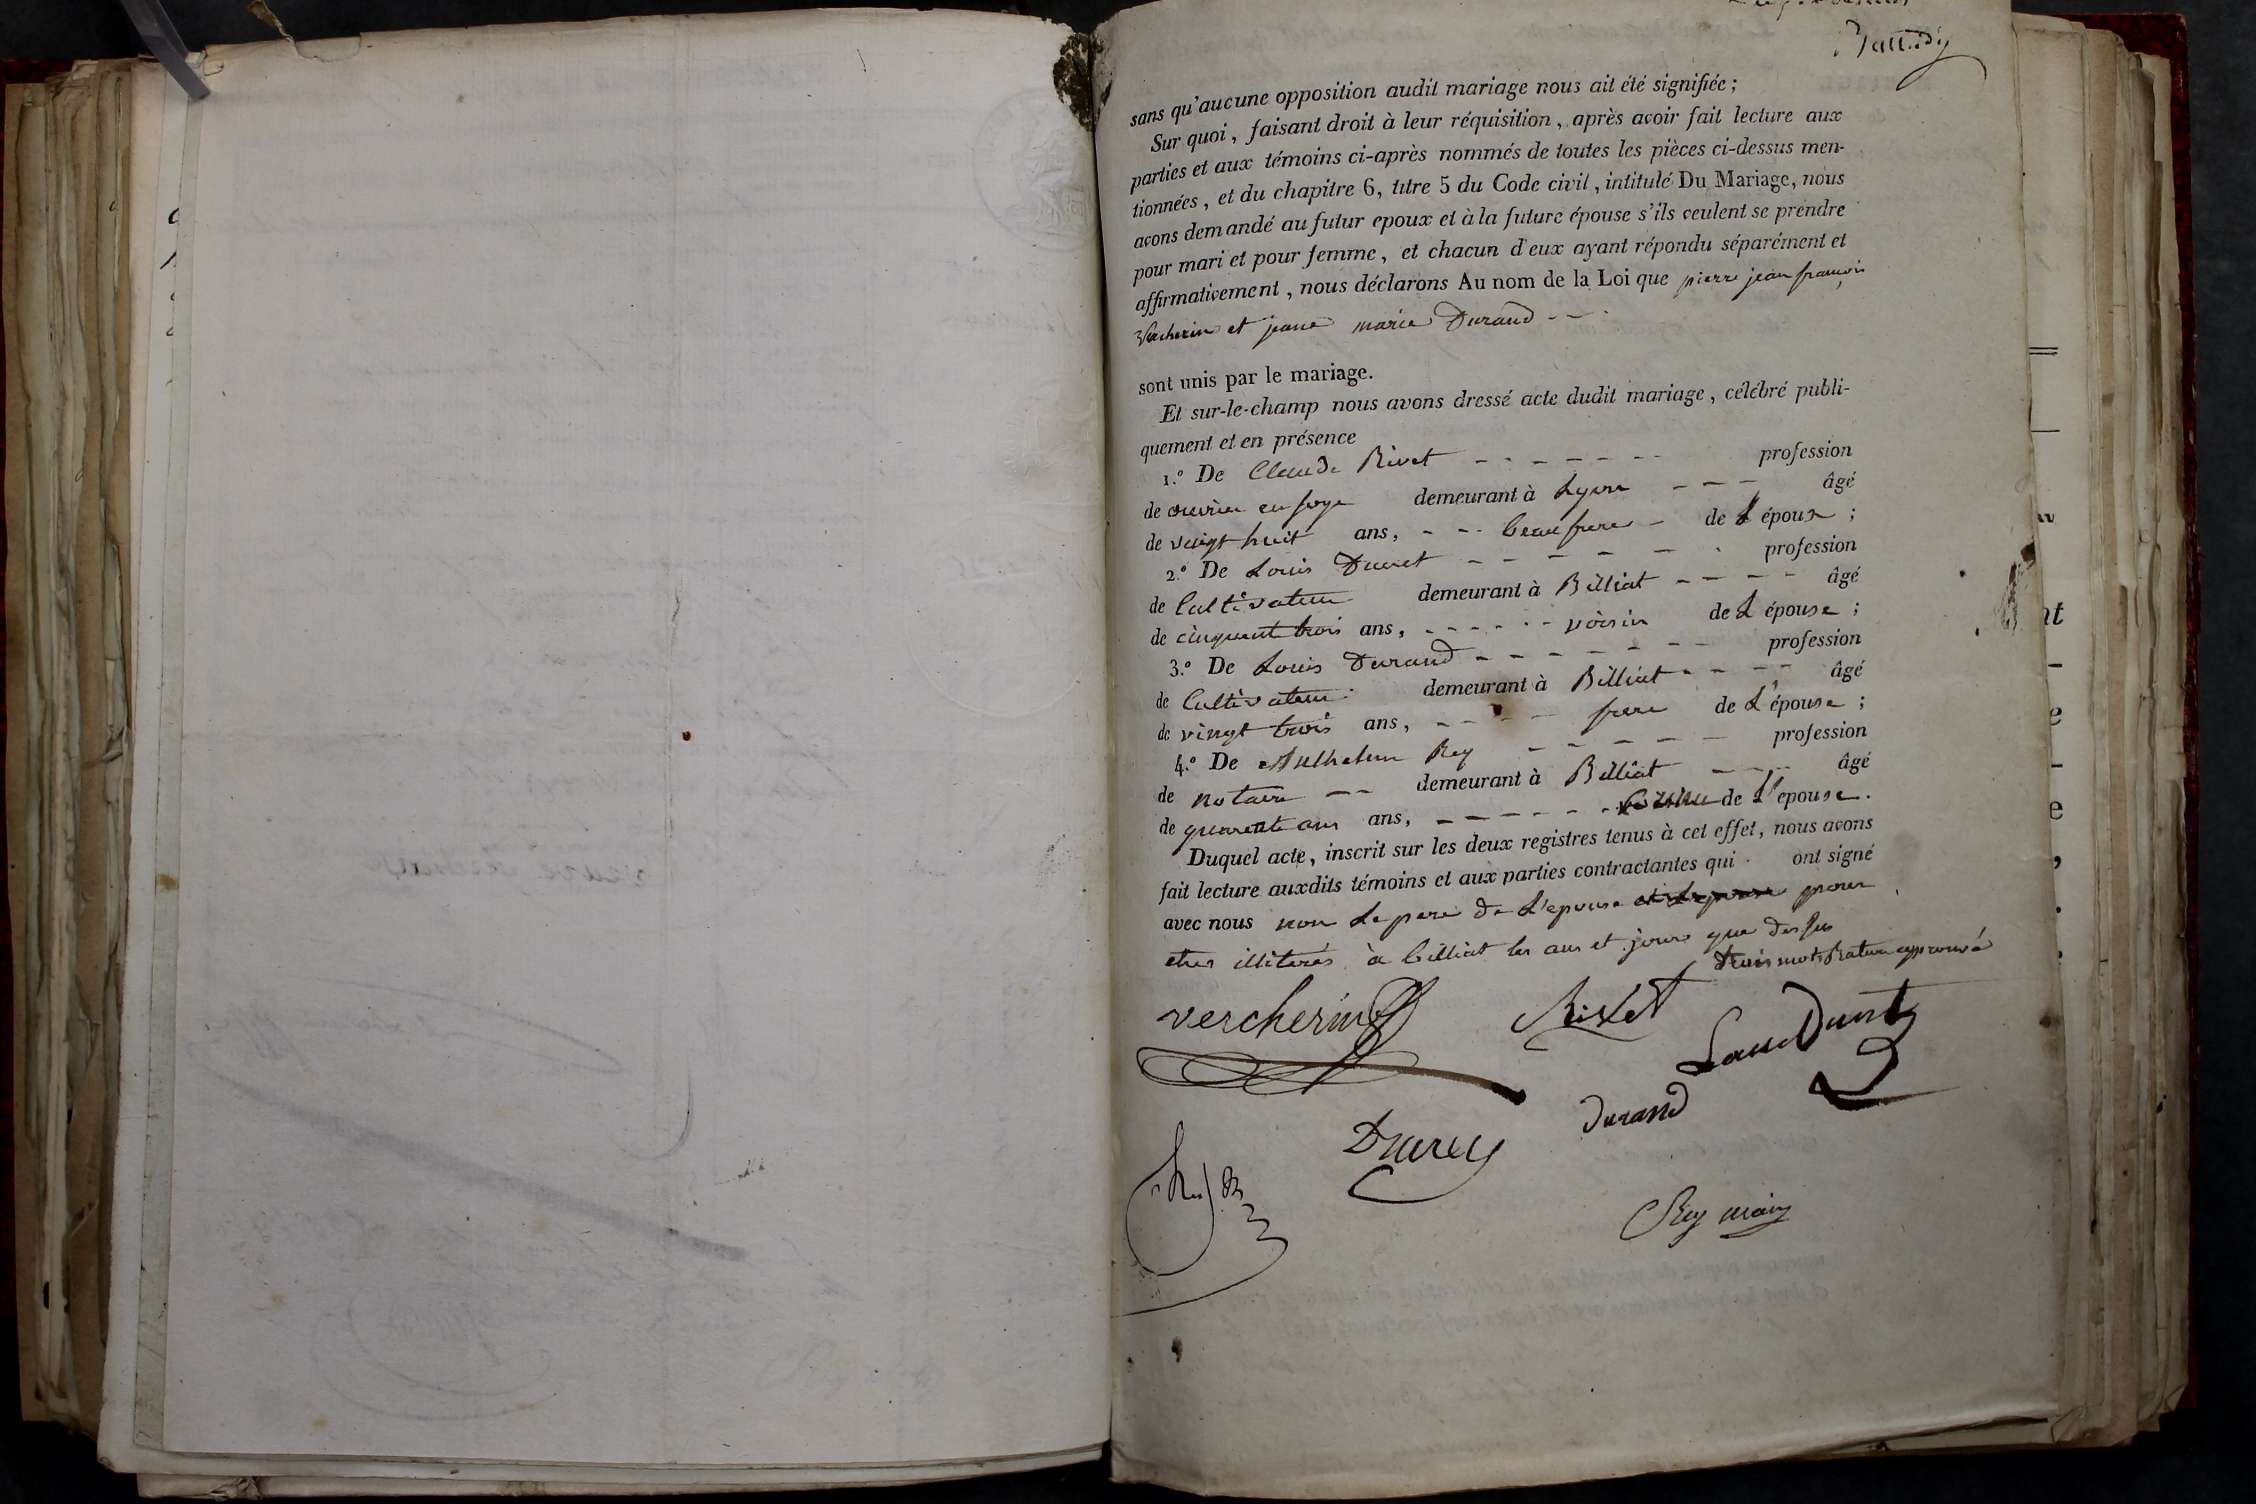 sans qu'aucune opposition audit mariage nous ait été signifiée ;
Sur quoi, faisant droit à leur réquisition, après avoir fait lecture aux
parties et aux témoins ci-après nommés de toutes les pièces ci-dessus men-
tionnées, et du chapitre 6, titre 5 du Code civil, intitulé Du Mariage, nous
avons demandé au futur epoux et à la future épouse s'ils veulent se prendre
pour mari et pour femme, et chacun d'eux ayant répondu séparément et
affirmativement, nous déclarons Au nom de la Loi que pierre jean françois
Vercherin et jeane marie Durand - - .
sont unis par le mariage.
Et sur-le-champ nous avons dressé acte dudit mariage, célébré publi-
quement et en présence
1.º De Claude Rivet - - - - - - - profession
de ouvrier en soye demeurant à Lyon - - - âgé
de vingt huit ans, - - - beaufrere - de L époux ;
2.º De Louis Ducret - - - - - - profession
de Cultivateur demeurant à Billiat - - - - âgé
de cinquant trois ans, - - - - - - voisin de L épouse ;
3.º De Louis Durand - - - - - - - profession
de Cultivateur demeurant à Billiat - - - - âgé
de vingt trois ans, - - - - - frere de L'épouse ;
4.º De Anthelme Rey - - - - - - profession
de notaire - - demeurant à Billiat - - - âgé
de quarente ans ans, - - - - - - de L'epouse.
Duquel acte, inscrit sur les deux registres tenus à cet effet, nous avons
fait lecture auxdits témoins et aux parties contractantes qui ont signé
avec nous non Le pere de L'epouse et L'epouse pour
etre illiterés à billiat les an et jour que dessus
trois mots Rature approuvé
vercherin
Rivet
Durand
Rey maire